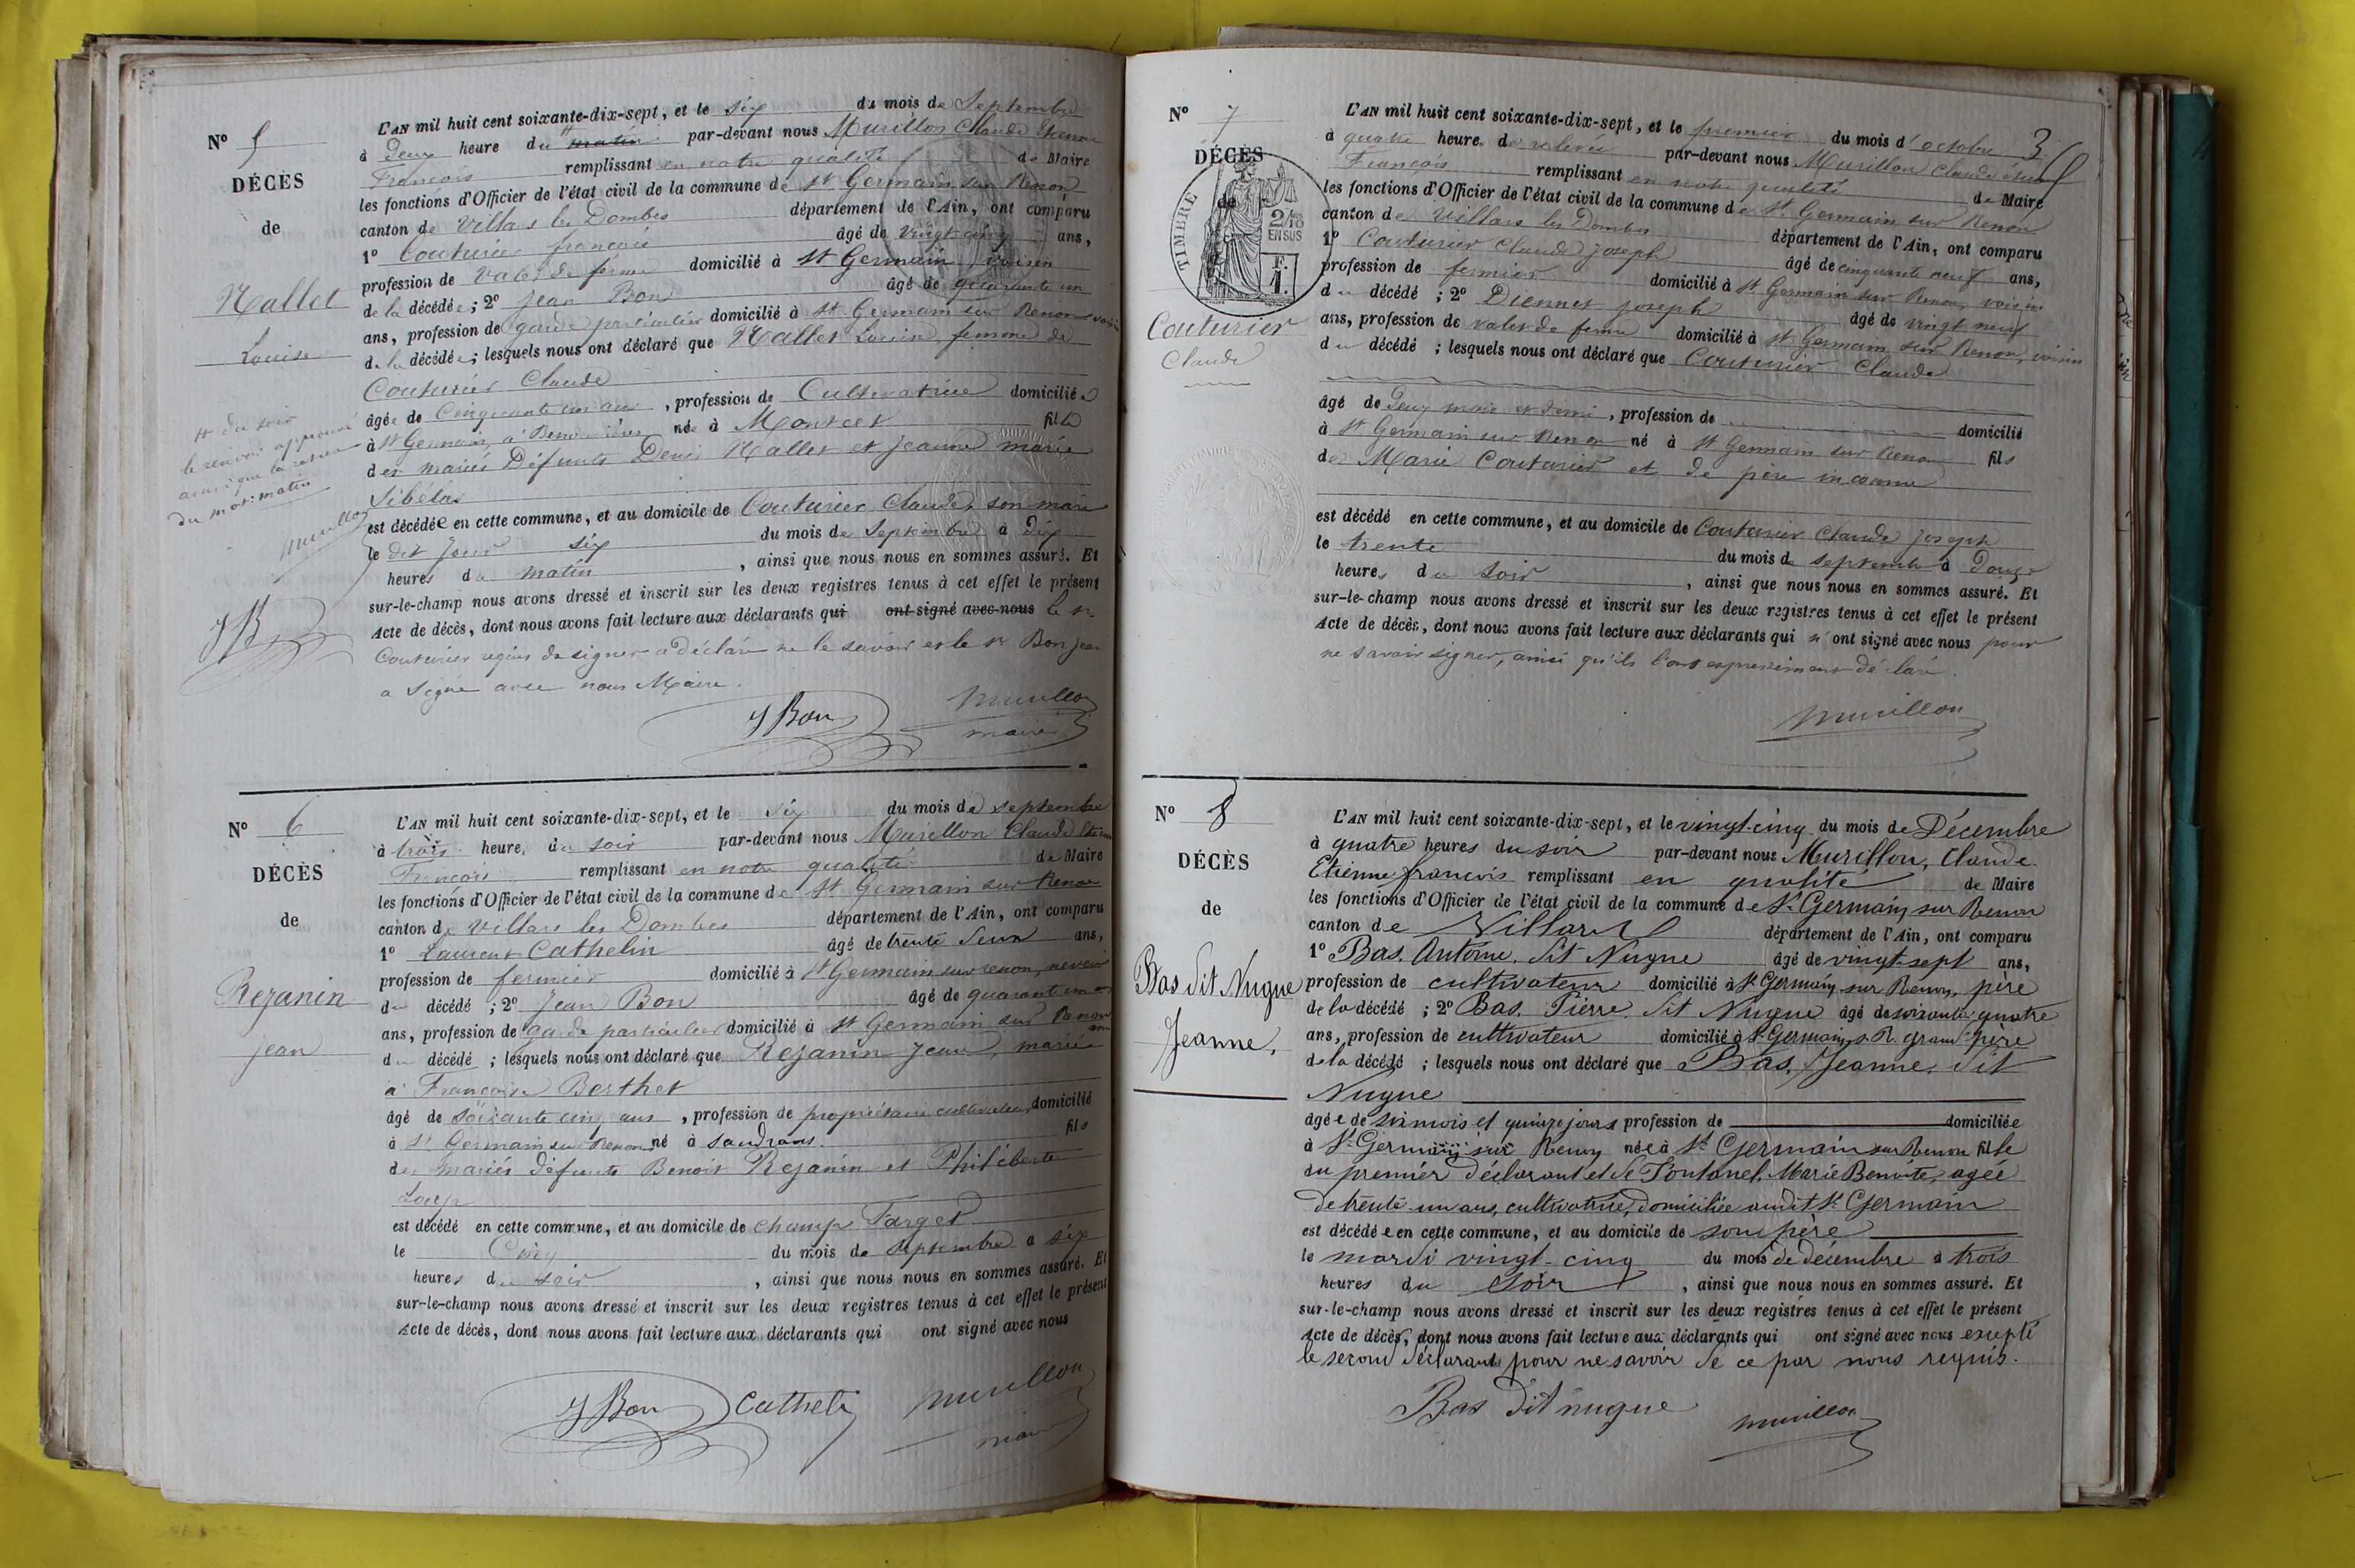 N° 5
DÉCÈS
de
Nallet
Louise
# du soir
le renvoi approuvé
ainsi que la rature
du mot: matin
Murillon
JB
L'AN mil huit cent soixante-dix-sept, et le six du mois de Septembre
à deux heure du # matin par-devant nous Murillon Claude Etienne
François remplissant en notre qualité de Maire
les fonctions d'Officier de l'état civil de la commune de St Germain sur Renon
canton de Villars les Dombes département de l'Ain, ont comparu
1° Couturier français âgé de vingt cinq ans,
profession de valet de ferme domicilié à St Germain, voisin
de la décédée; 2° Jean Bon âgé de quarante un
ans, profession de garde particulier domicilié à St Germain sur Renon voisin
de la décédée; lesquels nous ont déclaré que Nallet Louise femme de
Couturier Claude
âgée de Cinquante un ans, profession de Cultivatrice domiciliée
à St Germain, à née à Montcet fille
des mariés Défunts Denis Nallet et Jeanne marie
Sibélas
est décédée en cette commune, et au domicile de Couturier Claude, son mari
le dit jour six du mois de Septembre à dix
heures du matin, ainsi que nous nous en sommes assuré. Et
sur-le-champ nous avons dressé et inscrit sur les deux registres tenus à cet effet le présent
Acte de décès, dont nous avons fait lecture aux déclarants qui ont signé avec nous le sr
Couturier requis de signer a déclaré ne le savoir et le sr Bon Jean
a signé avec nous Maire.
J Bon Murillon
maire
N° 6
DÉCÈS
de
Rejanin
Jean
L'AN mil huit cent soixante-dix-sept, et le six du mois de septembre
à trois heure, du soir par-devant nous Murillon Claude Etienne
François remplissant en notre qualité de Maire
les fonctions d'Officier de l'état civil de la commune de St Germain sur Renon
canton de Villars les Dombes département de l'Ain, ont comparu
1° Laurent Cathelin âgé de trente deux ans,
profession de fermier domicilié à St Germain sur renon, neveu
du décédé; 2° Jean Bon âgé de quarante un
ans, profession de garde particulier domicilié à St Germain sur Renon ami
du décédé; lesquels nous ont déclaré que Rejanin Jean, marié
à Françoise Berthet
âgé de soixante cinq ans, profession de propriétaire cultivateur domicilié
à St Germain sur Renon né à Sandrans. fils
des mariés défunts Benoit Rejanin et Philiberte
Loup
est décédé en cette commune, et au domicile de champ Farget
le Cinq du mois de septembre à six
heures du soir, ainsi que nous nous en sommes assuré. Et
sur-le-champ nous avons dressé et inscrit sur les deux registres tenus à cet effet le présent
Acte de décès, dont nous avons fait lecture aux déclarants qui ont signé avec nous
J Bon Cathelin Murillon
maire
3
N° 7
DÉCÈS
de
TIMBRE
2/10
EN SUS
F.
1.
Couturier
Claude
L'AN mil huit cent soixante-dix-sept, et le premier du mois d'octobre
à quatre heure de relevée par-devant nous Murillon Claude étienne
François remplissant en notre qualité de Maire
les fonctions d'Officier de l'état civil de la commune de St Germain sur Renon
canton de Villars les Dombes département de l'Ain, ont comparu
1° Couturier Claude Joseph âgé de cinquante neuf ans,
profession de fermier domicilié à St Germain sur Renon, voisin
du décédé; 2° Diennet joseph âgé de vingt neuf
ans, profession de valet de ferme domicilié à St Germain sur Renon, voisin
du décédé; lesquels nous ont déclaré que Couturier Claude
âgé de deux mois et demi, profession de domicilié
à St Germain sur Renon né à St Germain sur Renon fils
de Marie Couturier et de père inconnu
est décédé en cette commune, et au domicile de Couturier Claude Joseph
le trente du mois de septembre à Douze
heures du soir, ainsi que nous nous en sommes assuré. Et
sur-le-champ nous avons dressé et inscrit sur les deux registres tenus à cet effet le présent
Acte de décès, dont nous avons fait lecture aux déclarants qui n'ont signé avec nous pour
ne savoir signer, ainsi qu'ils l'ont expressément déclaré.
Murillon
N° 8
DÉCÈS
de
Bas dit Nugue
Jeanne.
L'AN mil huit cent soixante-dix-sept, et le vingt-cinq du mois de Décembre
à quatre heures du soir par-devant nous Murillon, Claude
Etienne françois remplissant en qualité de Maire
les fonctions d'Officier de l'état civil de la commune de St Germain sur Renon
canton de Villars département de l'Ain, ont comparu
1° Bas, Antoine, dit Nugue âgé de vingt-sept ans,
profession de cultivateur domicilié à St Germain sur Renon, père
de la décédé; 2° Bas, Pierre, dit Nugue âgé de soixante quatre
ans, profession de cultivateur domicilié à St Germain s. R. grand père
de la décédé; lesquels nous ont déclaré que Bas, Jeanne, dit
Nugue
âgée de six mois et quinze jours profession de domiciliée
à St Germain sur Renon née à St Germain sur Renon fille
du premier déclarant et de Fontanel, Marie Benoite, agée
de trente-un ans, cultivatrice, domiciliée audit St Germain
est décédée en cette commune, et au domicile de son père
le mardi vingt-cinq du mois de décembre à trois
heures du soir, ainsi que nous nous en sommes assuré. Et
sur-le-champ nous avons dressé et inscrit sur les deux registres tenus à cet effet le présent
Acte de décès, dont nous avons fait lecture aux déclarants qui ont signé avec nous excepté
le second déclarant pour ne savoir de ce par nous requis.
Bas dit nugue Murillon